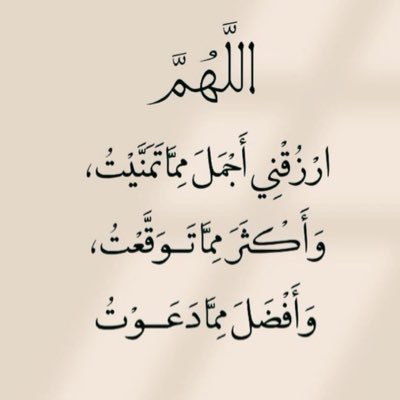 اللَّهُمَّ
ارْزُقْنِي أَجْمَلَ مِمَّا تَمَنَّيْتُ،
وَأَكْثَرَ مِمَّا تَـوَقَّعْتُ،
وَأَفْضَلَ مِمَّا دَعَـــوْتُ